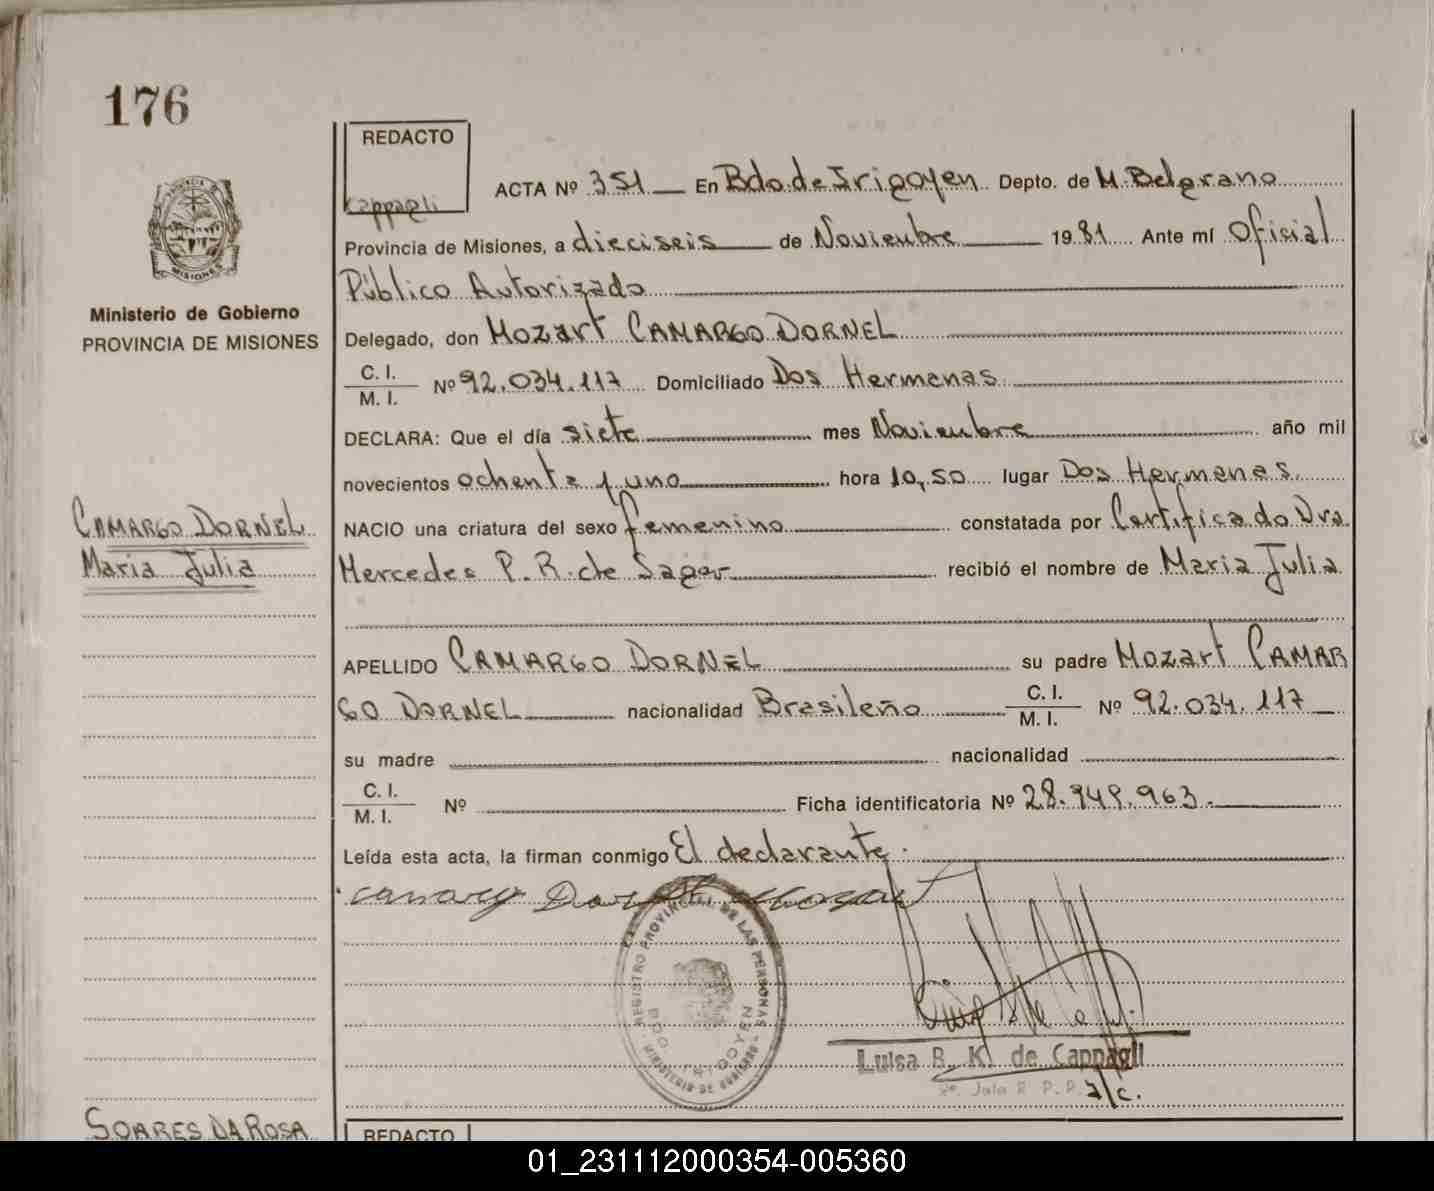 176
REDACTO
Cappagli
ACTA Nº 351 En Bdo. de Irigoyen Depto. de M. Belgrano
Provincia de Misiones, a dieciseis de Noviembre 1981 Ante mí Oficial
Público Autorizado
MISIONES
Ministerio de Gobierno
PROVINCIA DE MISIONES
Delegado, don Mozart CAMARGO DORNEL
C. I.
M. I.
Nº 92.034.117 Domiciliado Dos Hermanas
DECLARA: Que el día siete mes Noviembre año mil
novecientos ochenta y uno hora 10,50 lugar Dos Hermanas.
CAMARGO DORNEL
Maria Julia
NACIO una criatura del sexo femenino constatada por Certificado Dra.
Mercedes P. R. de Sager recibió el nombre de Maria Julia
APELLIDO CAMARGO DORNEL su padre Mozart CAMAR
GO DORNEL nacionalidad Brasileño C. I. M. I. Nº 92.034.117
su madre nacionalidad
C. I.
M. I.
Nº Ficha identificatoria Nº 28.949.963.
Leída esta acta, la firman conmigo El declarante.
Camargo Dornel Mozart
REGISTRO PROVINCIAL DE LAS PERSONAS
BDO. IRIGOYEN
MINISTERIO DE GOBIERNO
Luisa B. K. de Cappagli
R. P. P.
a/c.
SOARES DA ROSA
REDACTO
01_231112000354-005360